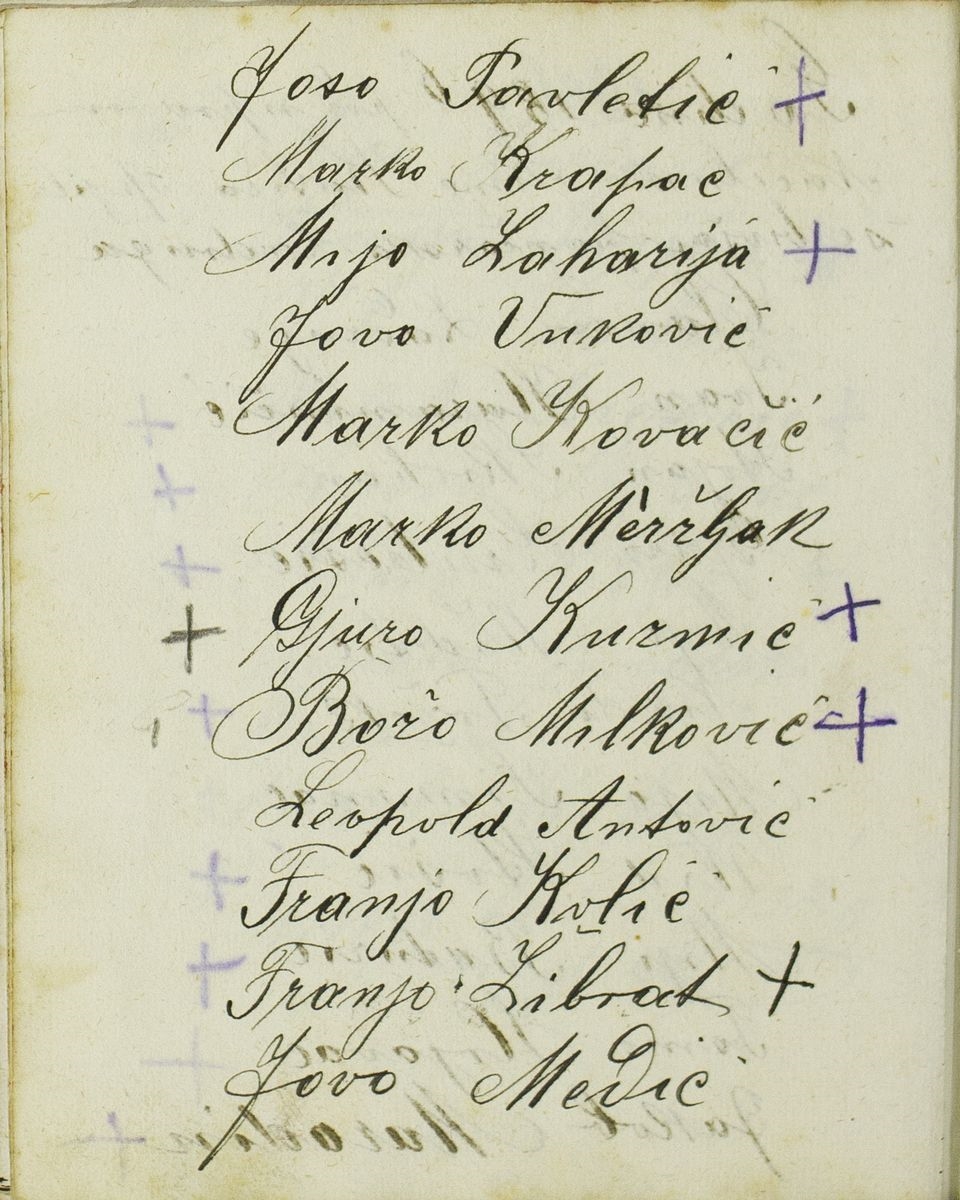 Joso Pavletić +
Marko Krapac
Mijo Zaharija +
Jovo Vuković
Marko Kovačić
Marko
+ Gjuro Kuzmić +
Božo Milković +
Leopold Antović
Franjo Kolić
Franjo Žibrat +
Jovo Medić